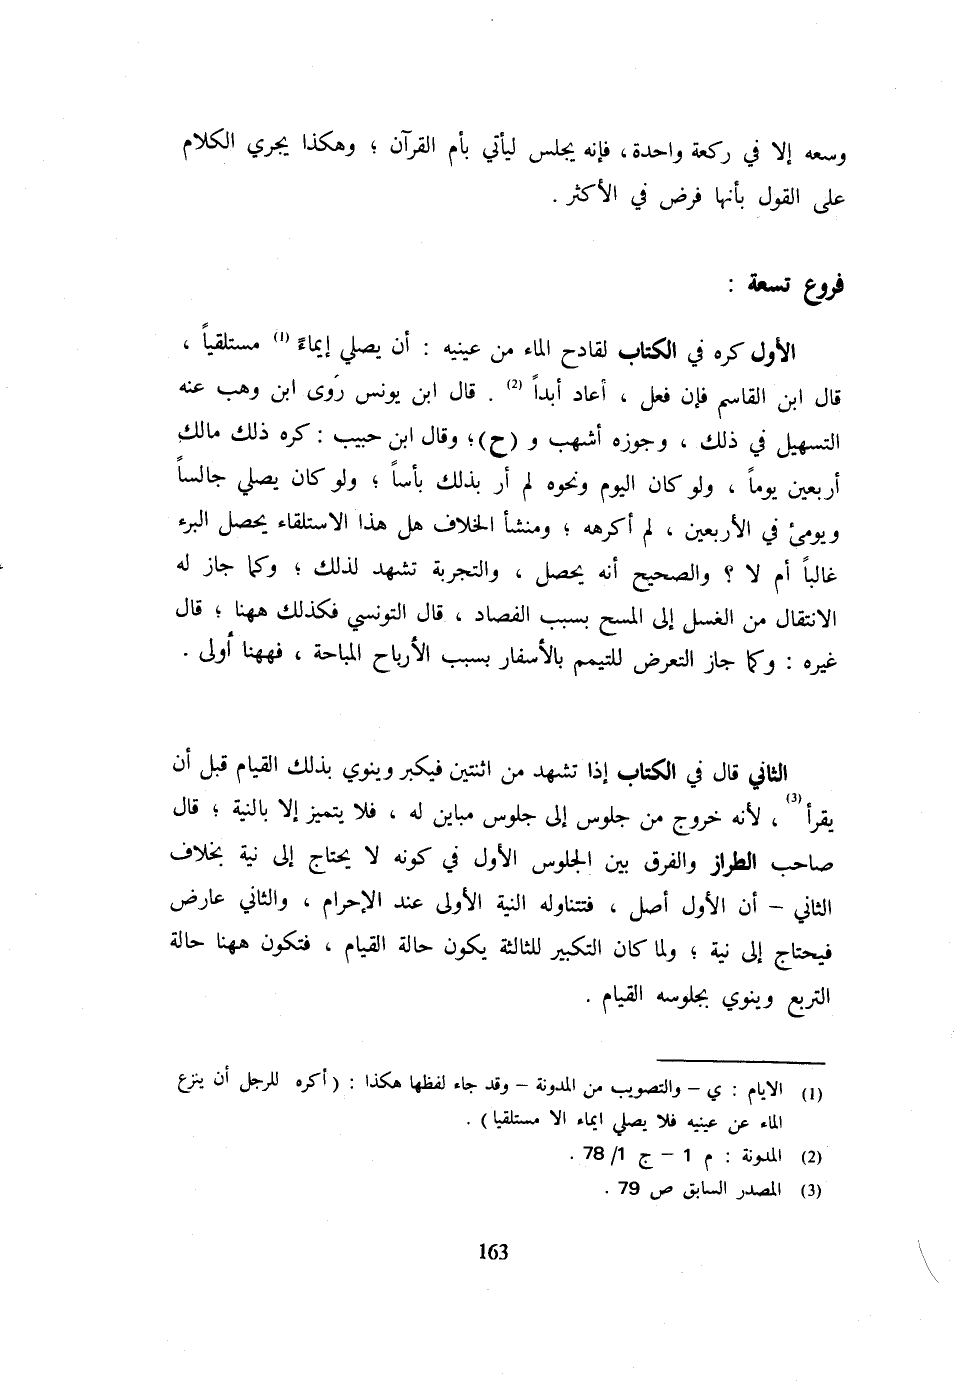 وسعه إلا في ركعة واحدة ، فإنه يجلس ليأتي بأم القرآن ؛ وهكذا يجري الكلام
على القول بأنها فرض في الأكثر .
فروع تسعة :
الأول كره في الكتاب لقادح الماء من عينيه : أن يصلي إيماءً (1) مستلقياً ،
قال ابن القاسم فإن فعل ، أعاد أبداً (2) . قال ابن يونس رَوى ابن وهب عنه
التسهيل في ذلك ، وجوزه أشهب و (ح)؛ وقال ابن حبيب : كره ذلك مالك
أربعين يوماً ، ولو كان اليوم ونحوه لم أر بذلك بأساً ؛ ولو كان يصلي جالساً
ويومئ في الأربعين ، لم أكرهه ؛ ومنشأ الخلاف هل هذا الاستلقاء يحصل البرء
غالباً أم لا ؟ والصحيح أنه يحصل ، والتجربة تشهد لذلك ؛ وكما جاز له
الانتقال من الغسل إلى المسح بسبب الفصاد ، قال التونسي فكذلك ههنا ؛ قال
غيره : وكما جاز التعرض للتيمم بالأسفار بسبب الأرباح المباحة ، فههنا أولى .
الثاني قال في الكتاب إذا تشهد من اثنتين فيكبر وينوي بذلك القيام قبل أن
يقرأ (3) ، لأنه خروج من جلوس إلى جلوس مباين له ، فلا يتميز إلا بالنية ؛ قال
صاحب الطراز والفرق بين الجلوس الأول في كونه لا يحتاج إلى نية بخلاف
الثاني – أن الأول أصل ، فتتناوله النية الأولى عند الإحرام ، والثاني عارض
فيحتاج إلى نية ؛ ولما كان التكبير للثالثة يكون حالة القيام ، فتكون ههنا حالة
التربع وينوي بجلوسه القيام .
(1) الايام : ي – والتصويب من المدونة – وقد جاء لفظها هكذا : (أكره للرجل أن ينزع
الماء عن عينيه فلا يصلي ايماء الا مستلقيا) .
(2) المدونة : م 1 – ج 1/ 78 .
(3) المصدر السابق ص 79 .
163